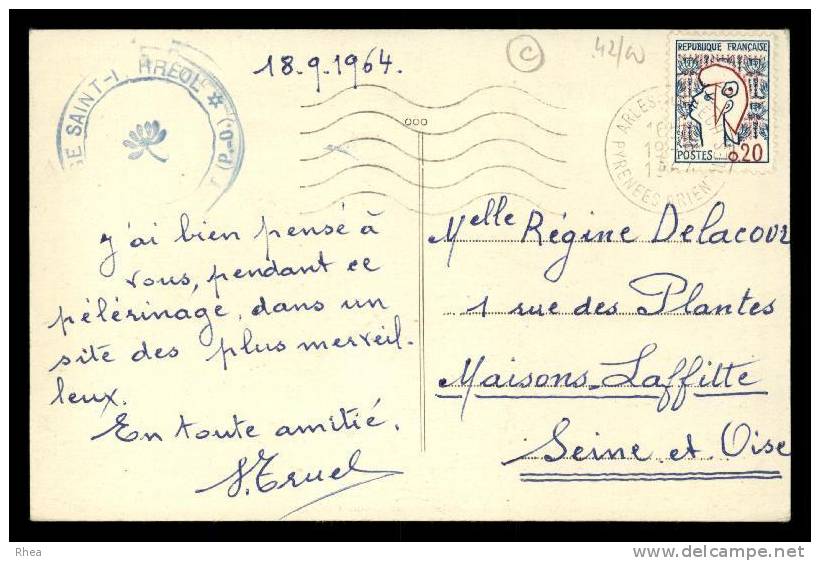 18.9.1964.
C
42/W
REPUBLIQUE FRANÇAISE
POSTES 0,20
ARLES
PYRENEES ORIENTALES
SAINT-
j'ai bien pensé à
vous, pendant ce
pélérinage, dans un
site des plus merveil-
leux.
En toute amitié.
Melle Régine Delacour
1 rue des Plantes
Maisons-Laffitte
Seine et Oise
Rhea
delcampe.net